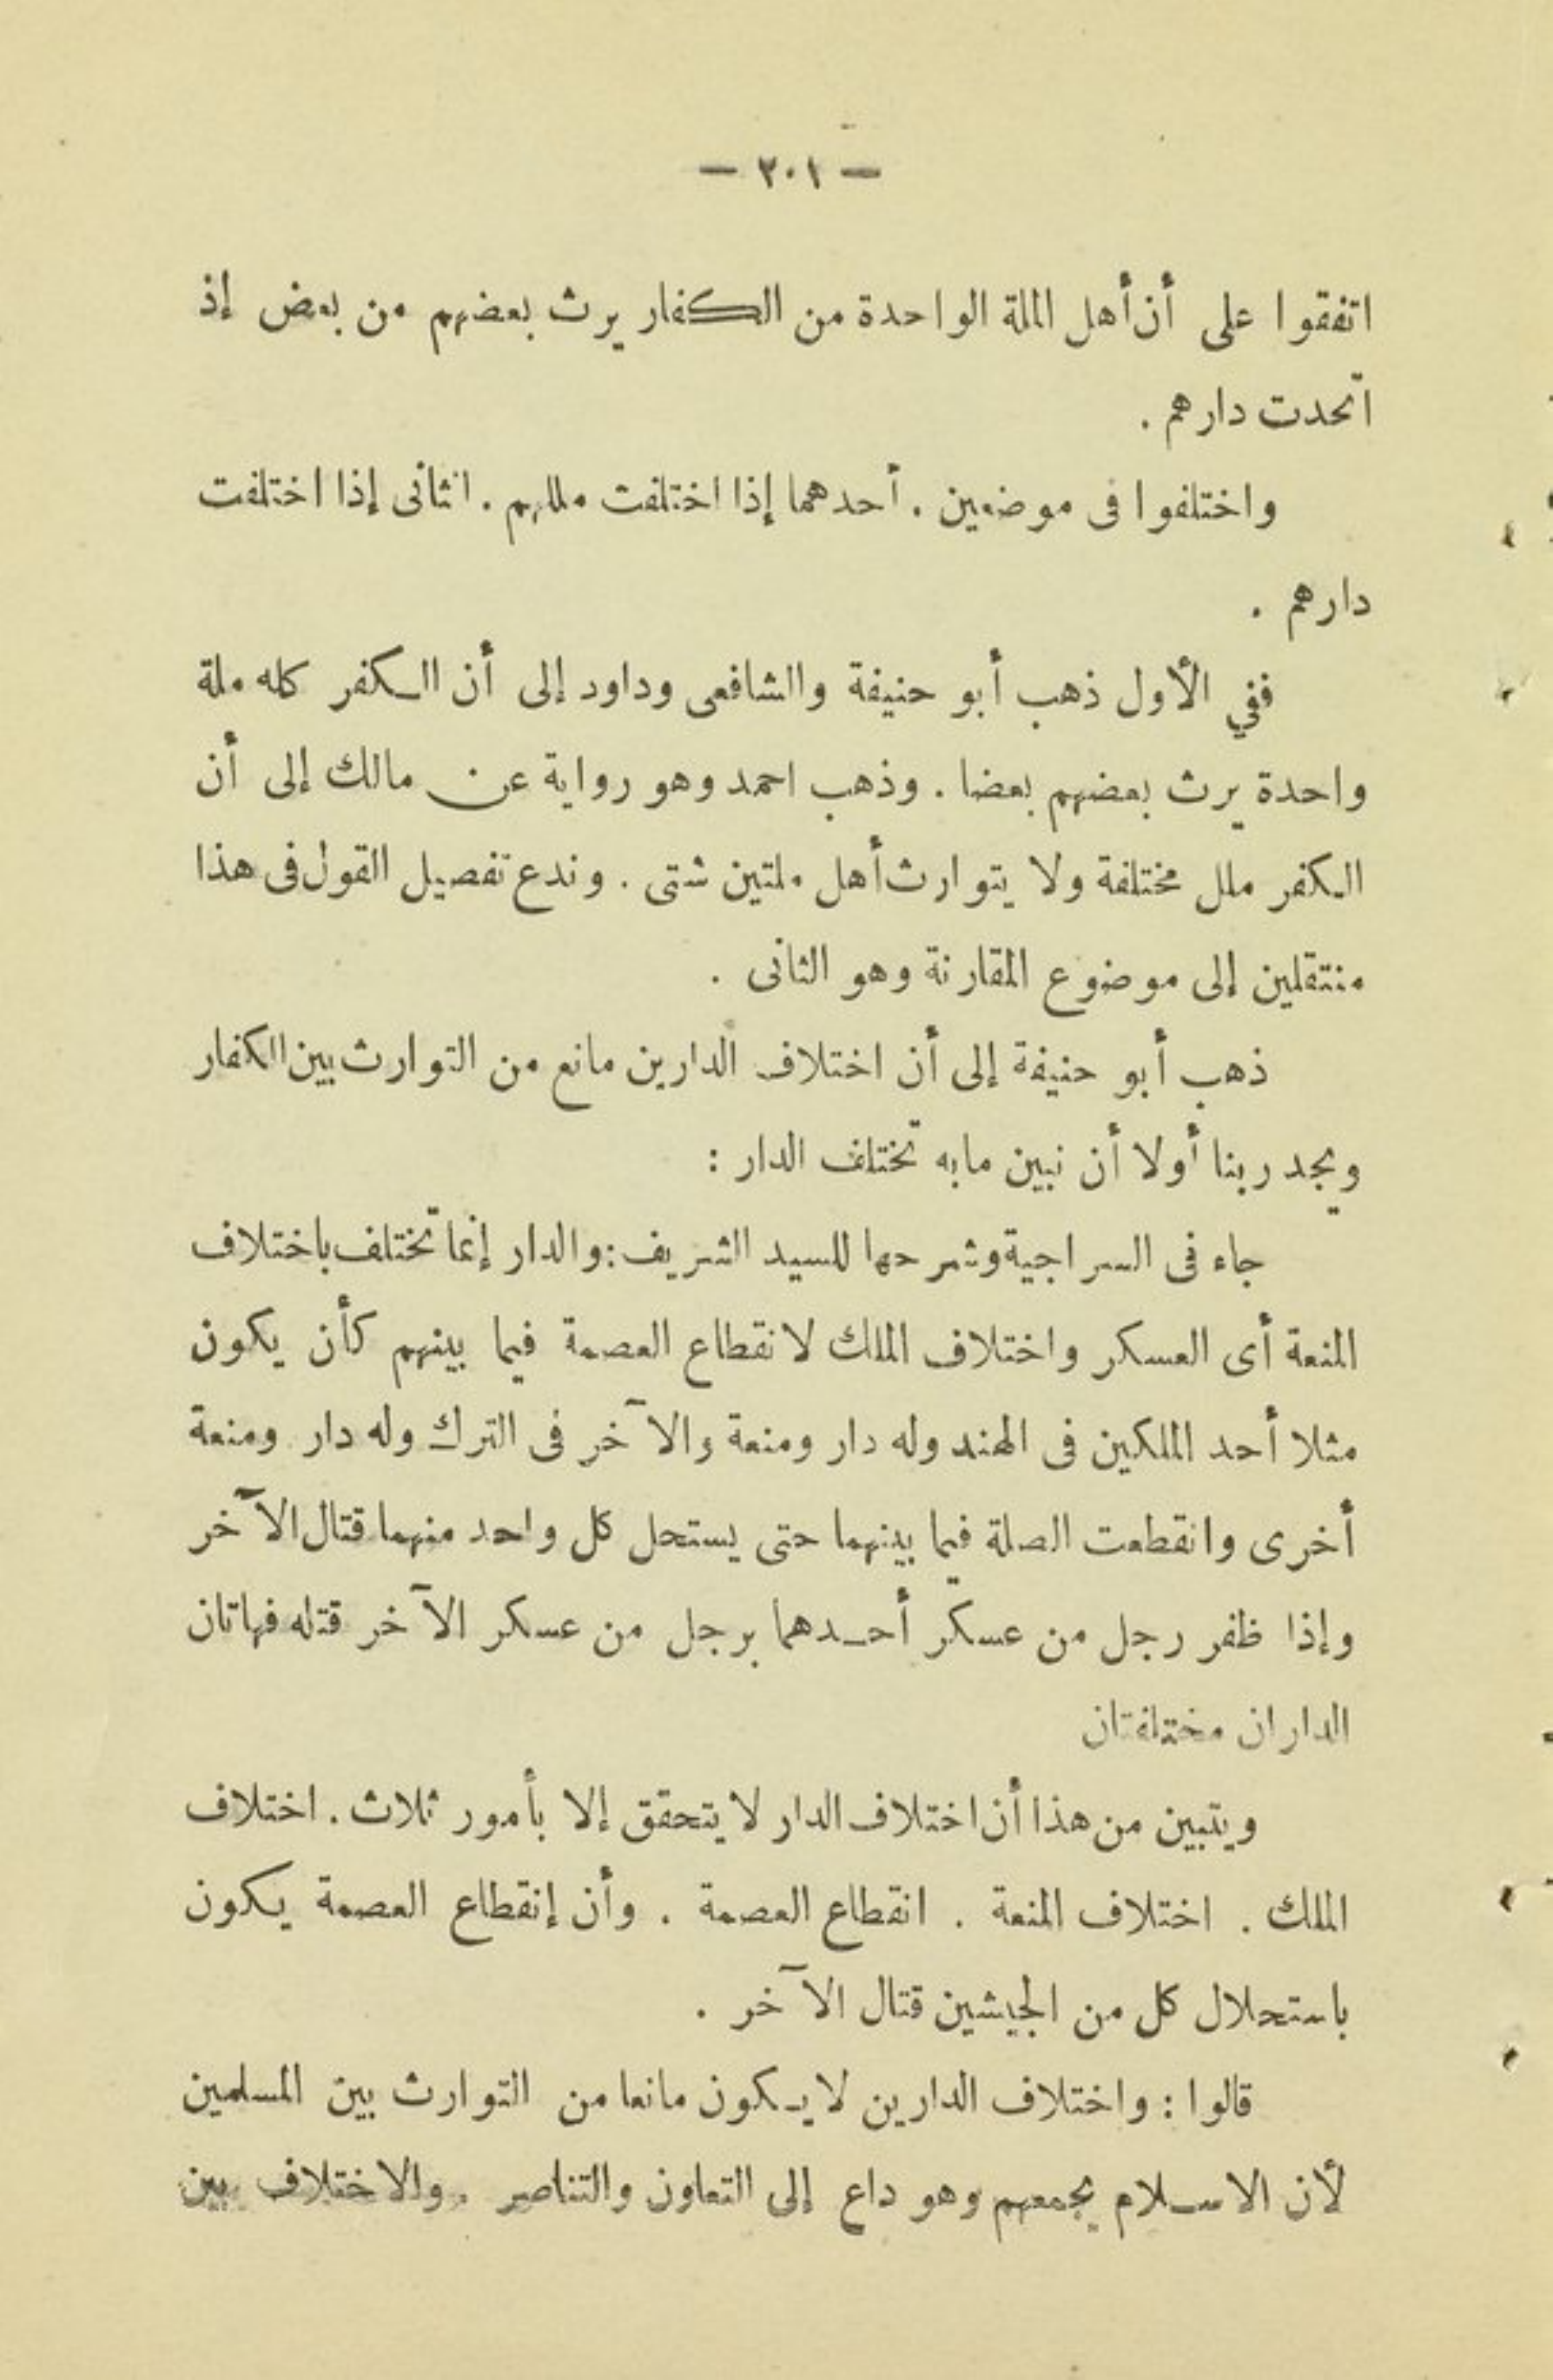 — ٢٠١ —
اتفقوا على أن أهل الملة الواحدة من الكفار يرث بعضهم من بعض إذ
اتحدت دارهم .
واختلفوا فى موضعين . أحدهما إذا اختلفت مللهم . الثانى إذا اختلفت
دارهم .
ففي الأول ذهب أبو حنيفة والشافعى وداود إلى أن الكفر كله ملة
واحدة يرث بعضهم بعضا . وذهب احمد وهو رواية عن مالك إلى أن
الكفر ملل مختلفة ولا يتوارث أهل ملتين شتى . وندع تفصيل القول فى هذا
منتقلين إلى موضوع المقارنة وهو الثانى .
ذهب أبو حنيفة إلى أن اختلاف الدارين مانع من التوارث بين الكفار
ويجدر بنا أولا أن نبين مابه تختلف الدار :
جاء فى السراجية وشرحها للسيد الشريف : والدار إنما تختلف باختلاف
المنعة أى العسكر واختلاف الملك لانقطاع العصمة فيما بينهم كأن يكون
مثلا أحد الملكين فى الهند وله دار ومنعة والآخر فى الترك وله دار ومنعة
أخرى وانقطعت الصلة فيما بينهما حتى يستحل كل واحد منهما قتال الآخر
وإذا ظفر رجل من عسكر أحدهما برجل من عسكر الآخر قتله فهاتان
الداران مختلفتان
ويتبين من هذا أن اختلاف الدار لا يتحقق إلا بأمور ثلاث . اختلاف
الملك . اختلاف المنعة . انقطاع العصمة . وأن إنقطاع العصمة يكون
باستحلال كل من الجيشين قتال الآخر .
قالوا : واختلاف الدارين لا يكون مانعا من التوارث بين المسلمين
لأن الاسلام يجمعهم وهو داع إلى التعاون والتناصر . والاختلاف بين